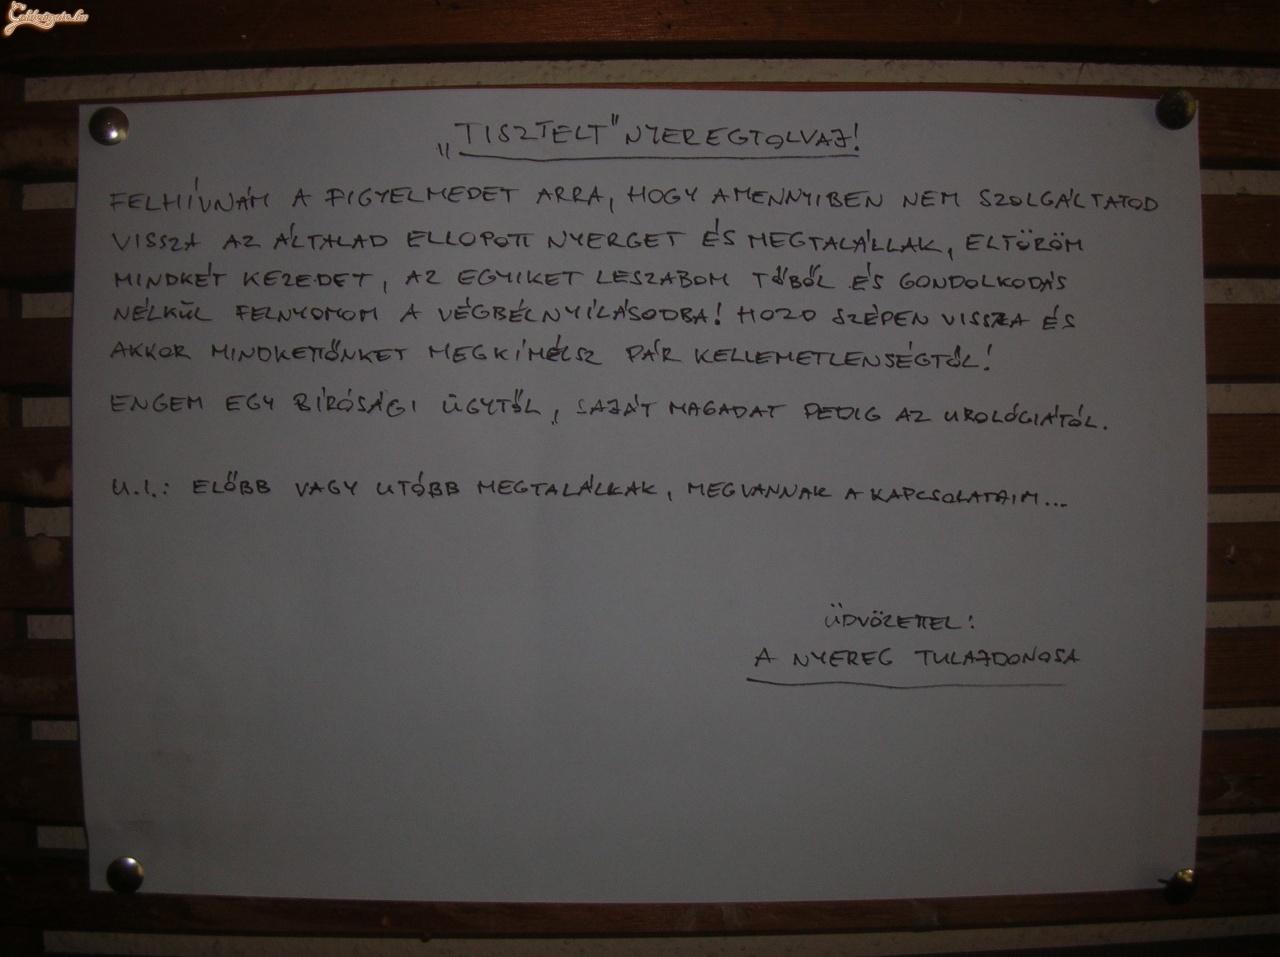 „TISZTELT" NYEREGTOLVAJ!
FELHÍVNÁM A FIGYELMEDET ARRA, HOGY AMENNYIBEN NEM SZOLGÁLTATOD
VISSZA AZ ÁLTALAD ELLOPOTT NYERGET ÉS MEGTALÁLLAK, ELTÖRÖM
MINDKÉT KEZEDET, AZ EGYIKET LESZABOM TŐBŐL ÉS GONDOLKODÁS
NÉLKÜL FELNYOMOM A VÉGBÉLNYÍLÁSODBA! HOZD SZÉPEN VISSZA ÉS
AKKOR MINDKETTŐNKET MEGKÍMÉLSZ PÁR KELLEMETLENSÉGTŐL!
ENGEM EGY BÍRÓSÁGI ÜGYTŐL, SAJÁT MAGADAT PEDIG AZ UROLÓGIÁTÓL.
U.I.: ELŐBB VAGY UTÓBB MEGTALÁLLAK, MEGVANNAK A KAPCSOLATAIM...
ÜDVÖZLETTEL:
A NYEREG TULAJDONOSA